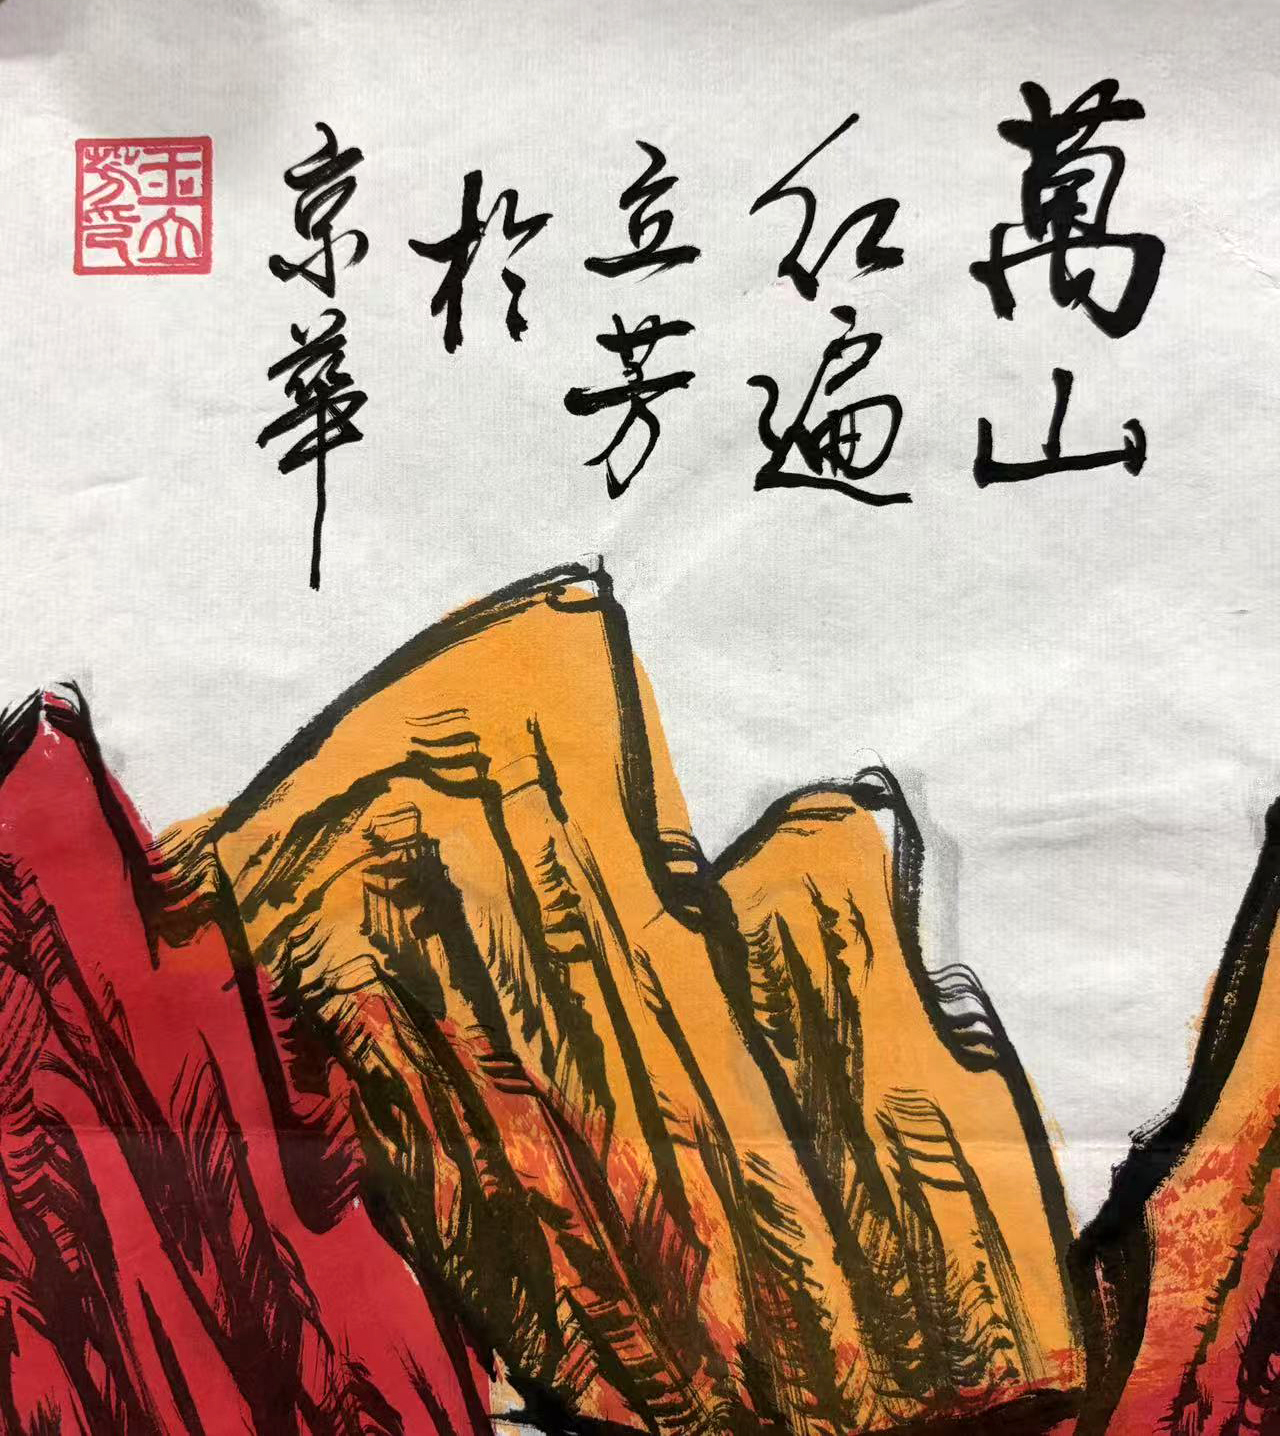 萬山
红遍
立芳
於
京華
王立
芳印